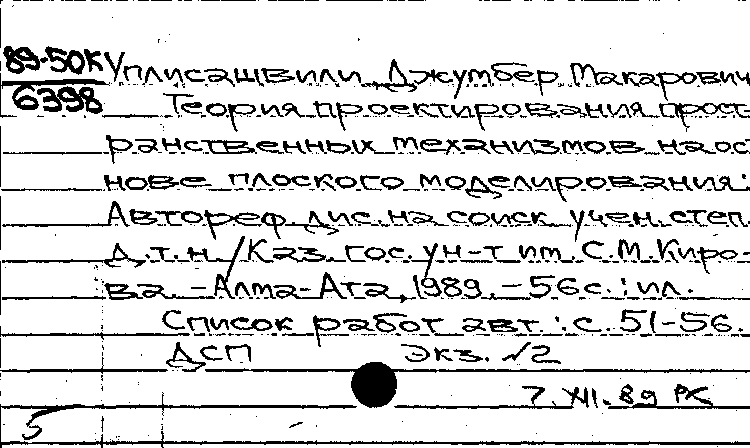 89-50К Уплисашвили, Джумбер Макарович
6398 Теория проектирования прост-
ранственных механизмов на ос-
нове плоского моделирования:
Автореф. дис. на соиск. учен. степ.
д.т.н. / Каз. гос. ун-т им. С.М.Киро-
ва. – Алма-Ата, 1989. – 56с.: ил.
Список работ авт.: с. 51-56.
ДСП Экз. №2
7.XII.89
5